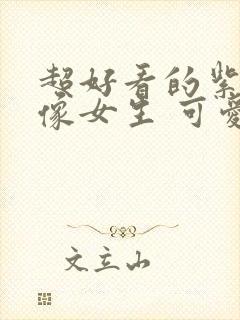 超好看的紫
像女生 可爱
文立山